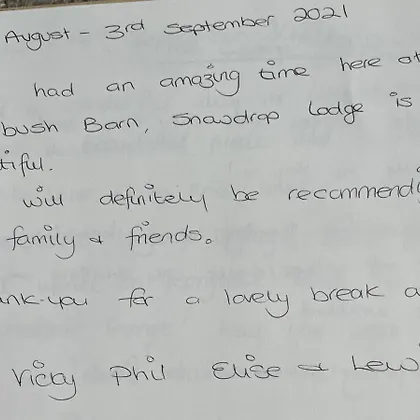 August - 3rd September 2021
had an amazing time here at
bush Barn, Snowdrop Lodge is
tiful.
will definitely be recommendi
family & friends.
ank-you for a lovely break a
Vicky Phil Elise & Lewi